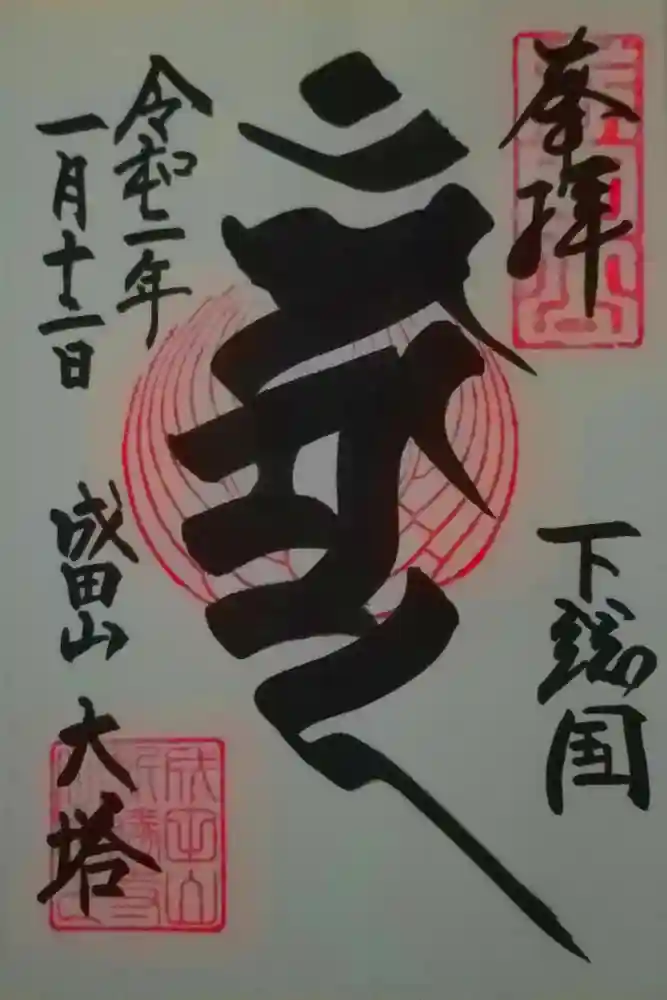 奉拝
下総国
令和二年
一月十二日
成田山 大塔